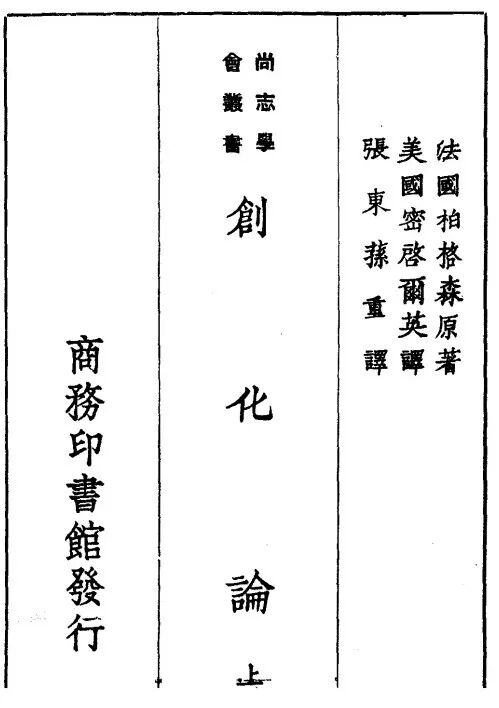 法國柏格森原著
美國密啓爾英譯
張東蓀重譯
尚志學
會叢書
創化論上
商務印書館發行